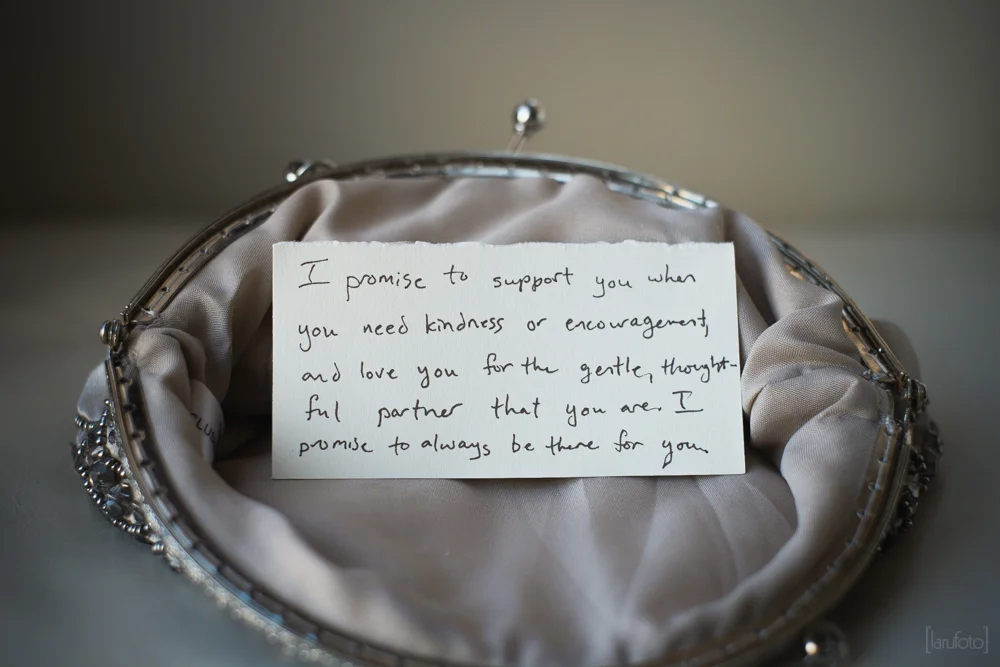 I promise to support you when
you need kindness or encouragement,
and love you for the gentle, thought-
ful partner that you are. I
promise to always be there for you.
[larufoto]